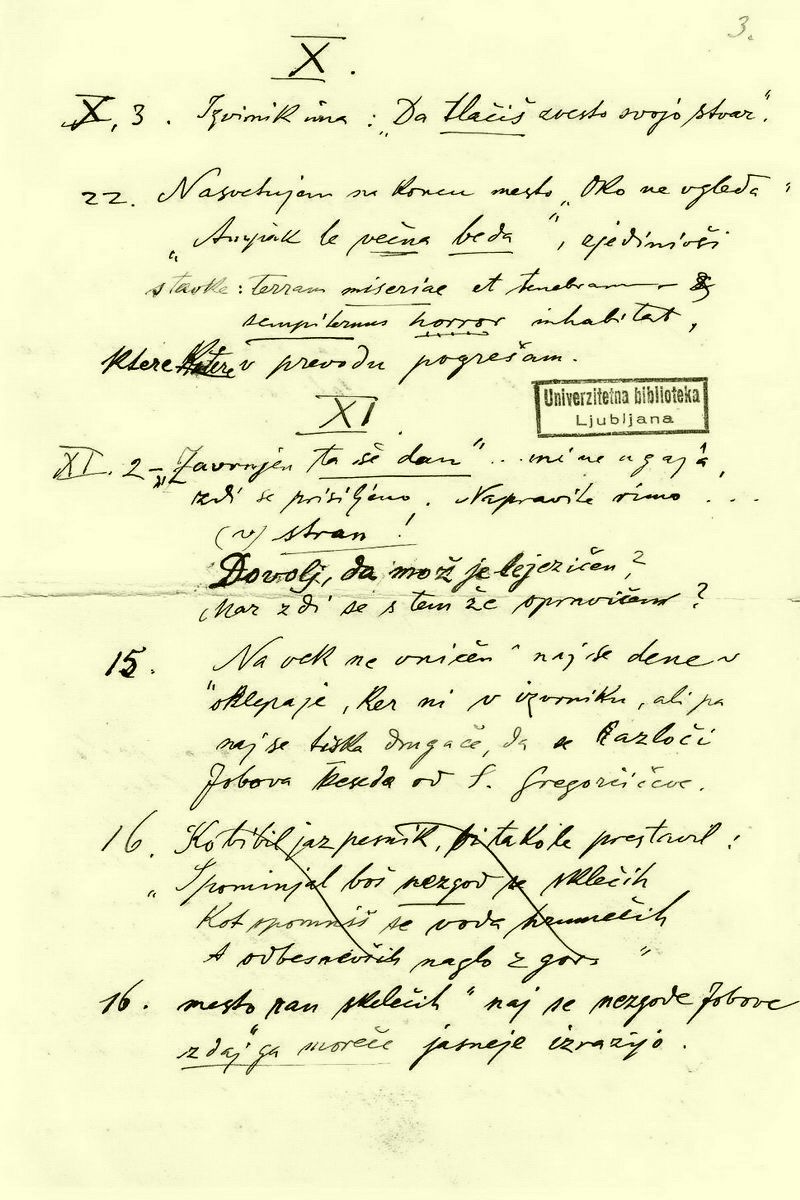 3.
X.
X, 3. Izvirnik ima: „Da tlačiš zvesto svojo stvar“.
22. Nasvetujem na koncu mesto „Oko ne ugleda“
„Ampak le večna beda“, zjedinivši
stavke: terram miseriae et tenebram
sempiternus horror inhabitat,
ktere v prevodu pogrešam.
Univerzitetna biblioteka
Ljubljana
XI.
XI. 2 – „Zavrnjen ta še dan“... mi ne ugaja,
zdi se prisiljeno. Napravite rimo ...
(v) stran!
Dovolj, da mož je lejezičen?
Mar zdi se s tem že opravičen?
15. Na vek ne uničen“ naj se dene v
„oklepaje, ker ni v izvirniku, ali pa
naj se tiska drugače, da se razloči
Jobova beseda od S. Gregorčičeve.
16. Ko bi bil jaz pesnik, bi takole prestavil:
„Spominjal boš nezgod se sklečih
Kot spomniš se voda hrumečih
A odbesnevših naglo z gor“
16. mesto „ran sklečih“ naj se nezgode Jobove
zdaj ga moreče jasneje izrazijo.